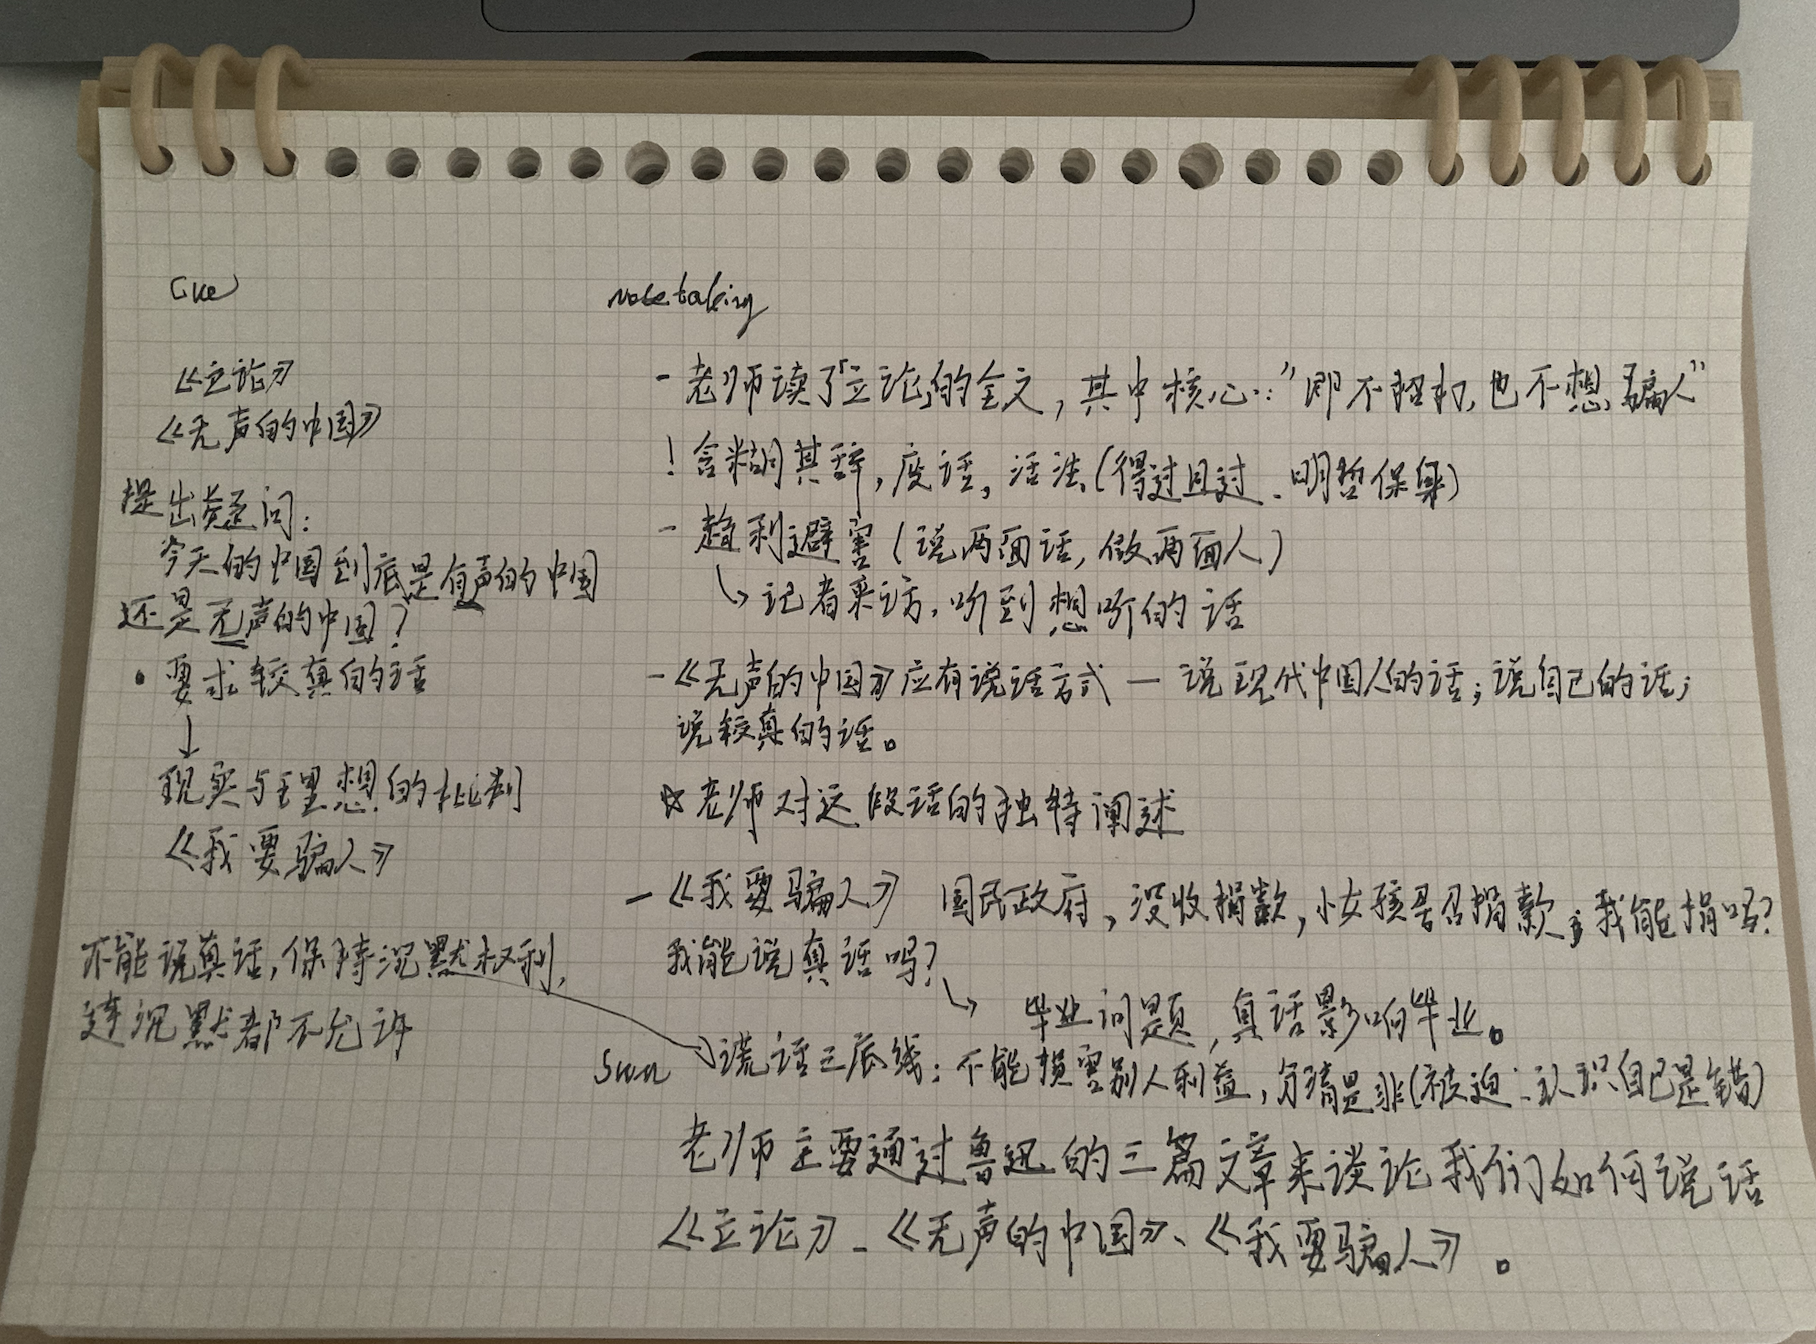 Cue
《立论》
《无声的中国》
提出疑问：
今天的中国到底是有声的中国
还是无声的中国？
· 要求较真的话
↓
现实与理想的批判
《我要骗人》
不能说真话，保持沉默权利，
连沉默都不允许
note taking
- 老师读了「立论」的全文，其中核心：“即不挨打，也不想骗人”
! 含糊其辞，废话，活法（得过且过、明哲保身）
- 趋利避害（说两面话，做两面人）
↳ 记者采访，听到想听的话
- 《无声的中国》应有说话方式 — 说现代中国人的话；说自己的话；
说较真的话。
☆ 老师对这段话的独特阐述
- 《我要骗人》 国民政府，没收捐款，小女孩是否捐款；我能捐吗？
我能说真话吗？
↳ 毕业问题，真话影响毕业。
谎话三底线：不能损害别人利益，分清是非（被迫：认识自己是错）
Sum
老师主要通过鲁迅的三篇文章来谈论我们如何说话
《立论》、《无声的中国》、《我要骗人》。